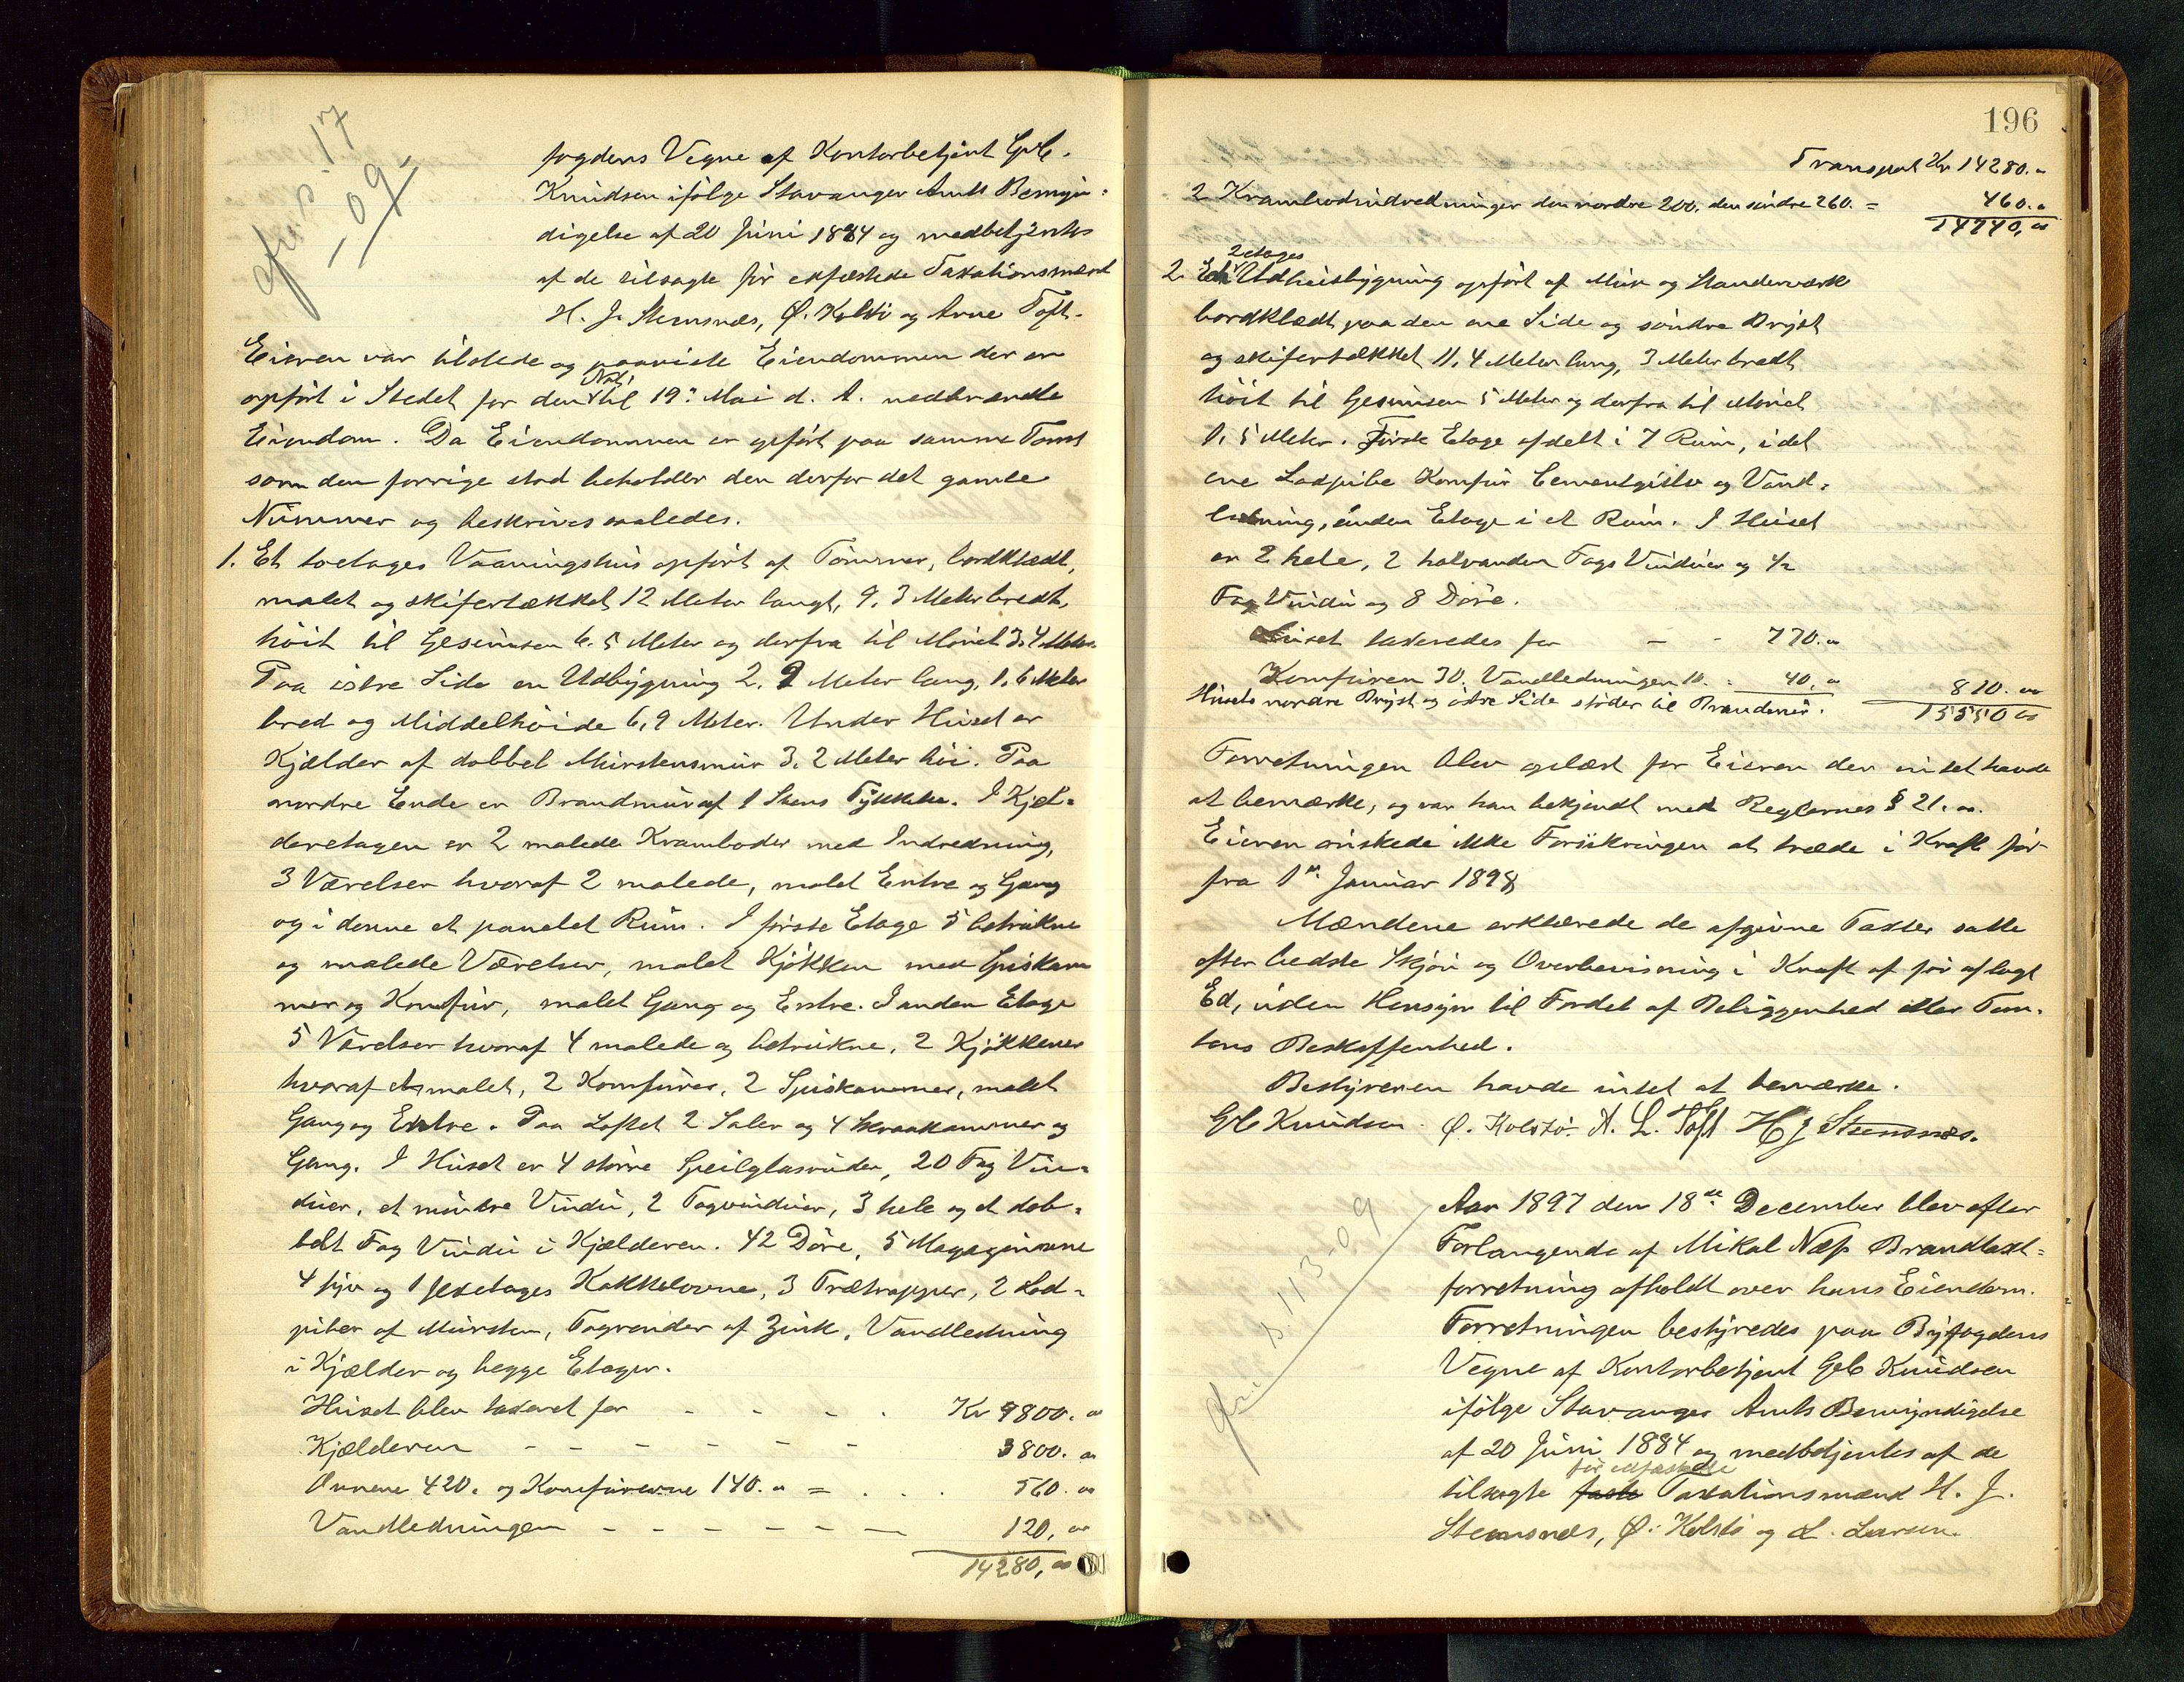 s. 17
- 09 -
fogdens Vegne af Kontorbetjent G. C.
Knudsen ifølge Stavanger Amts Bemyn-
digelse af 20 Juni 1884 og medbetjentes
af de tilsagte før edfæstede Taxationsmænd
H. J. Stensnæs, Ø. Kolstø og Arne Toft.
Eieren var tilstede og paaviste Eiendommen der er
opført i Stedet for den Nat til 19: Mai d. A. nedbrændte
Eiendom. Da Eiendommen er opført paa samme Tomt
som den forrige stod beholder den derfor det gamle
Nummer og beskrives saaledes.
1. Et toetages Vaaningshus opført af Tømmer, bordklædt,
malet og skifertækket 12 Meter langt, 9,3 Meter bredt,
høit til Gesimsen 6.5 Meter og derfra til Mønet 3.4 Meter.
Paa østre Side en Udbygning 2.9 Meter lang, 1.6 Meter
bred og Middelhøide 6,9 Meter. Under Huset er
Kjælder af dobbel Murstensmur 3.2 Meter høi. Paa
nordre Ende er Brandmur af 1 Stens Tykkelse. I Kjæl-
deretagen er 2 malede Kramboder med Indredning,
3 Værelser hvoraf 2 malede, malet Entre og Gang
og i denne et panelet Rum. I første Etage 5 betrukne
og malede Værelser, malet Kjøkken med Spiskam
mer og Komfur, malet Gang og Entre. I anden Etage
5 Værelser hvoraf 4 malede og betrukne, 2 Kjøkkener
hvoraf et malet, 2 Komfurer, 2 Spiskammer, malet
Gang og Entre. Paa Loftet 2 Saler og 4 Skraakammer og
Gang. I Huset er 4 større Speilglasruder, 20 Fag Vin-
duer, et mindre Vindu, 2 Tagvinduer, 3 hele og et dob-
belt Fag Vindu i Kjælderen. 42 Døre, 5 Magazinovne
4 og 1 sexetages Kakkelovne, 3 Trætrapper, 2 Lod-
piber af Mursten, Tagrender af Zink, Vandledning
i Kjælder og begge Etager.
Huset blev taxeret for - - - . Kr 9800. "
Kjælderen - - - - - - - 3800. "
Ovnene 420. og Komfurerne 140. " = . . . 560. "
Vandledningen - - - - - - - 120, "
14280, "
196
Transport Kr 14280. "
2 Krambodindredninger den nordre 200. den søndre 260. = 460. "
14740, "
2etages
2. En Udhusbygning opført af Mur og Standerværk
bordklædt paa den ene Side og søndre Bryst
og skifertækket 11,4 Meter lang, 3 Meter bredt
høit til Gesimsen 5 Meter og derfra til Mønet
1,5 Meter. Første Etage afdelt i 7 Rum, i det
ene Lodpibe Komfur Cementgulv og Vand-
ledning, anden Etage i et Rum. I Huset
er 2 hele, 2 halvanden Fags Vinduer og 1/2
Fag Vindu og 8 Døre.
Huset taxeredes for - - 770. "
Komfuren 30. Vandledningen 10. = 40, " 810. "
Husets nordre Bryst og østre Side støder til Brandmur. 15550 "
Forretningen blev oplæst for Eieren der intet havde
at bemærke, og var han bekjendt med Reglernes § 21. "
Eieren ønskede ikke Forsikringen at træde i Kraft før
fra 1ste Januar 1898
Mændene erklærede de afgivne Taxter satte
efter bedste Skjøn og Overbevisning i Kraft af før aflagt
Ed, uden Hensyn til Fordel af Beliggenhed eller Tom-
tens Beskaffenhed.
Bestyreren havde intet at bemærke.
G. C. Knudsen. Ø. Kolstø. A. L. Toft H J Stensnæs.
s. 113 - 09
Aar 1897 den 18de December blev efter
Forlangende af Mikal Næss Brandtaxt-
forretning afholdt over hans Eiendom.
Forretningen bestyredes paa Byfogdens
Vegne af Kontorbetjent G. C. Knudsen
ifølge Stavanger Amts Bemyndigelse
af 20 Juni 1884 og medbetjentes af de
før edfæstede
tilsagte faste Taxationsmænd H. J.
Stensnæs, Ø. Kolstø og L. Larsen.